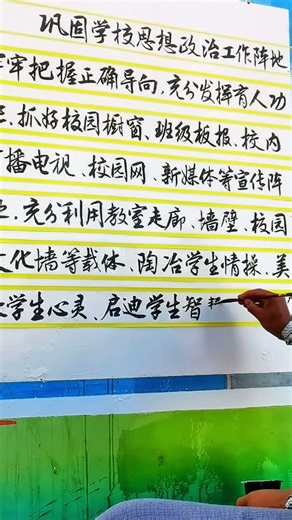 巩固学校思想政治工作阵地
牢把握正确导向,充分发挥育人功
抓好校园橱窗、班级板报、校内
播电视、校园网、新媒体等宣传阵
充分利用教室走廊、墙壁、校园
文化墙等载体、陶冶学生情操、美
学生心灵、启迪学生智